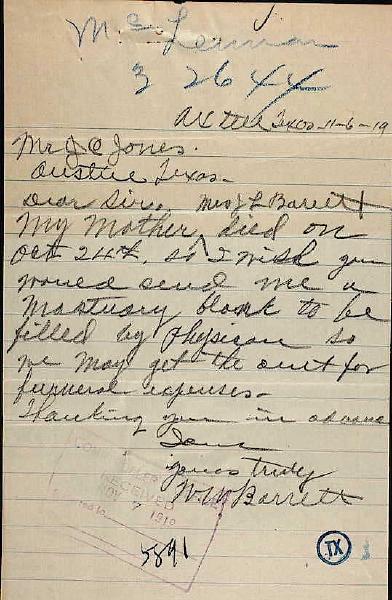 Mc Lennan
32644
Texas 11-6-19
Mr J O Jones.
Austin Texas.
Dear Sir,, Mrs J L Barrett
My Mother, died on
Oct 24th, so I wish you
would send me a
Mortuary blank to be
filled by Physican so
we may get the amt for
funeral expenses.
Thanking you in advance
I am
yours truly
W. M Barrett
RECEIVED
7 1919
5891
TX